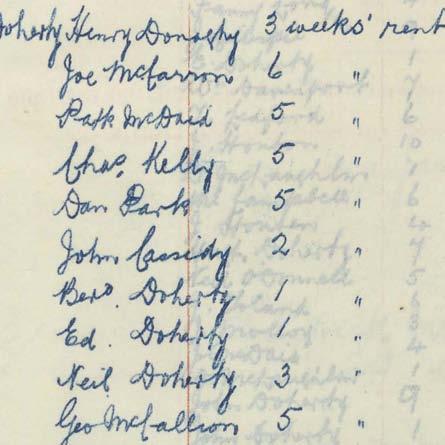 Doherty Henry Donaghy 3 weeks' rent
Joe McCarron 6 "
Patk McDaid 5 "
Chas. Kelly 5 "
Dan Park 5 "
John Cassidy 2 "
Bero. Doherty 1 "
Ed. Doherty 1 "
Neil Doherty 3 "
Geo McCallion 5 "